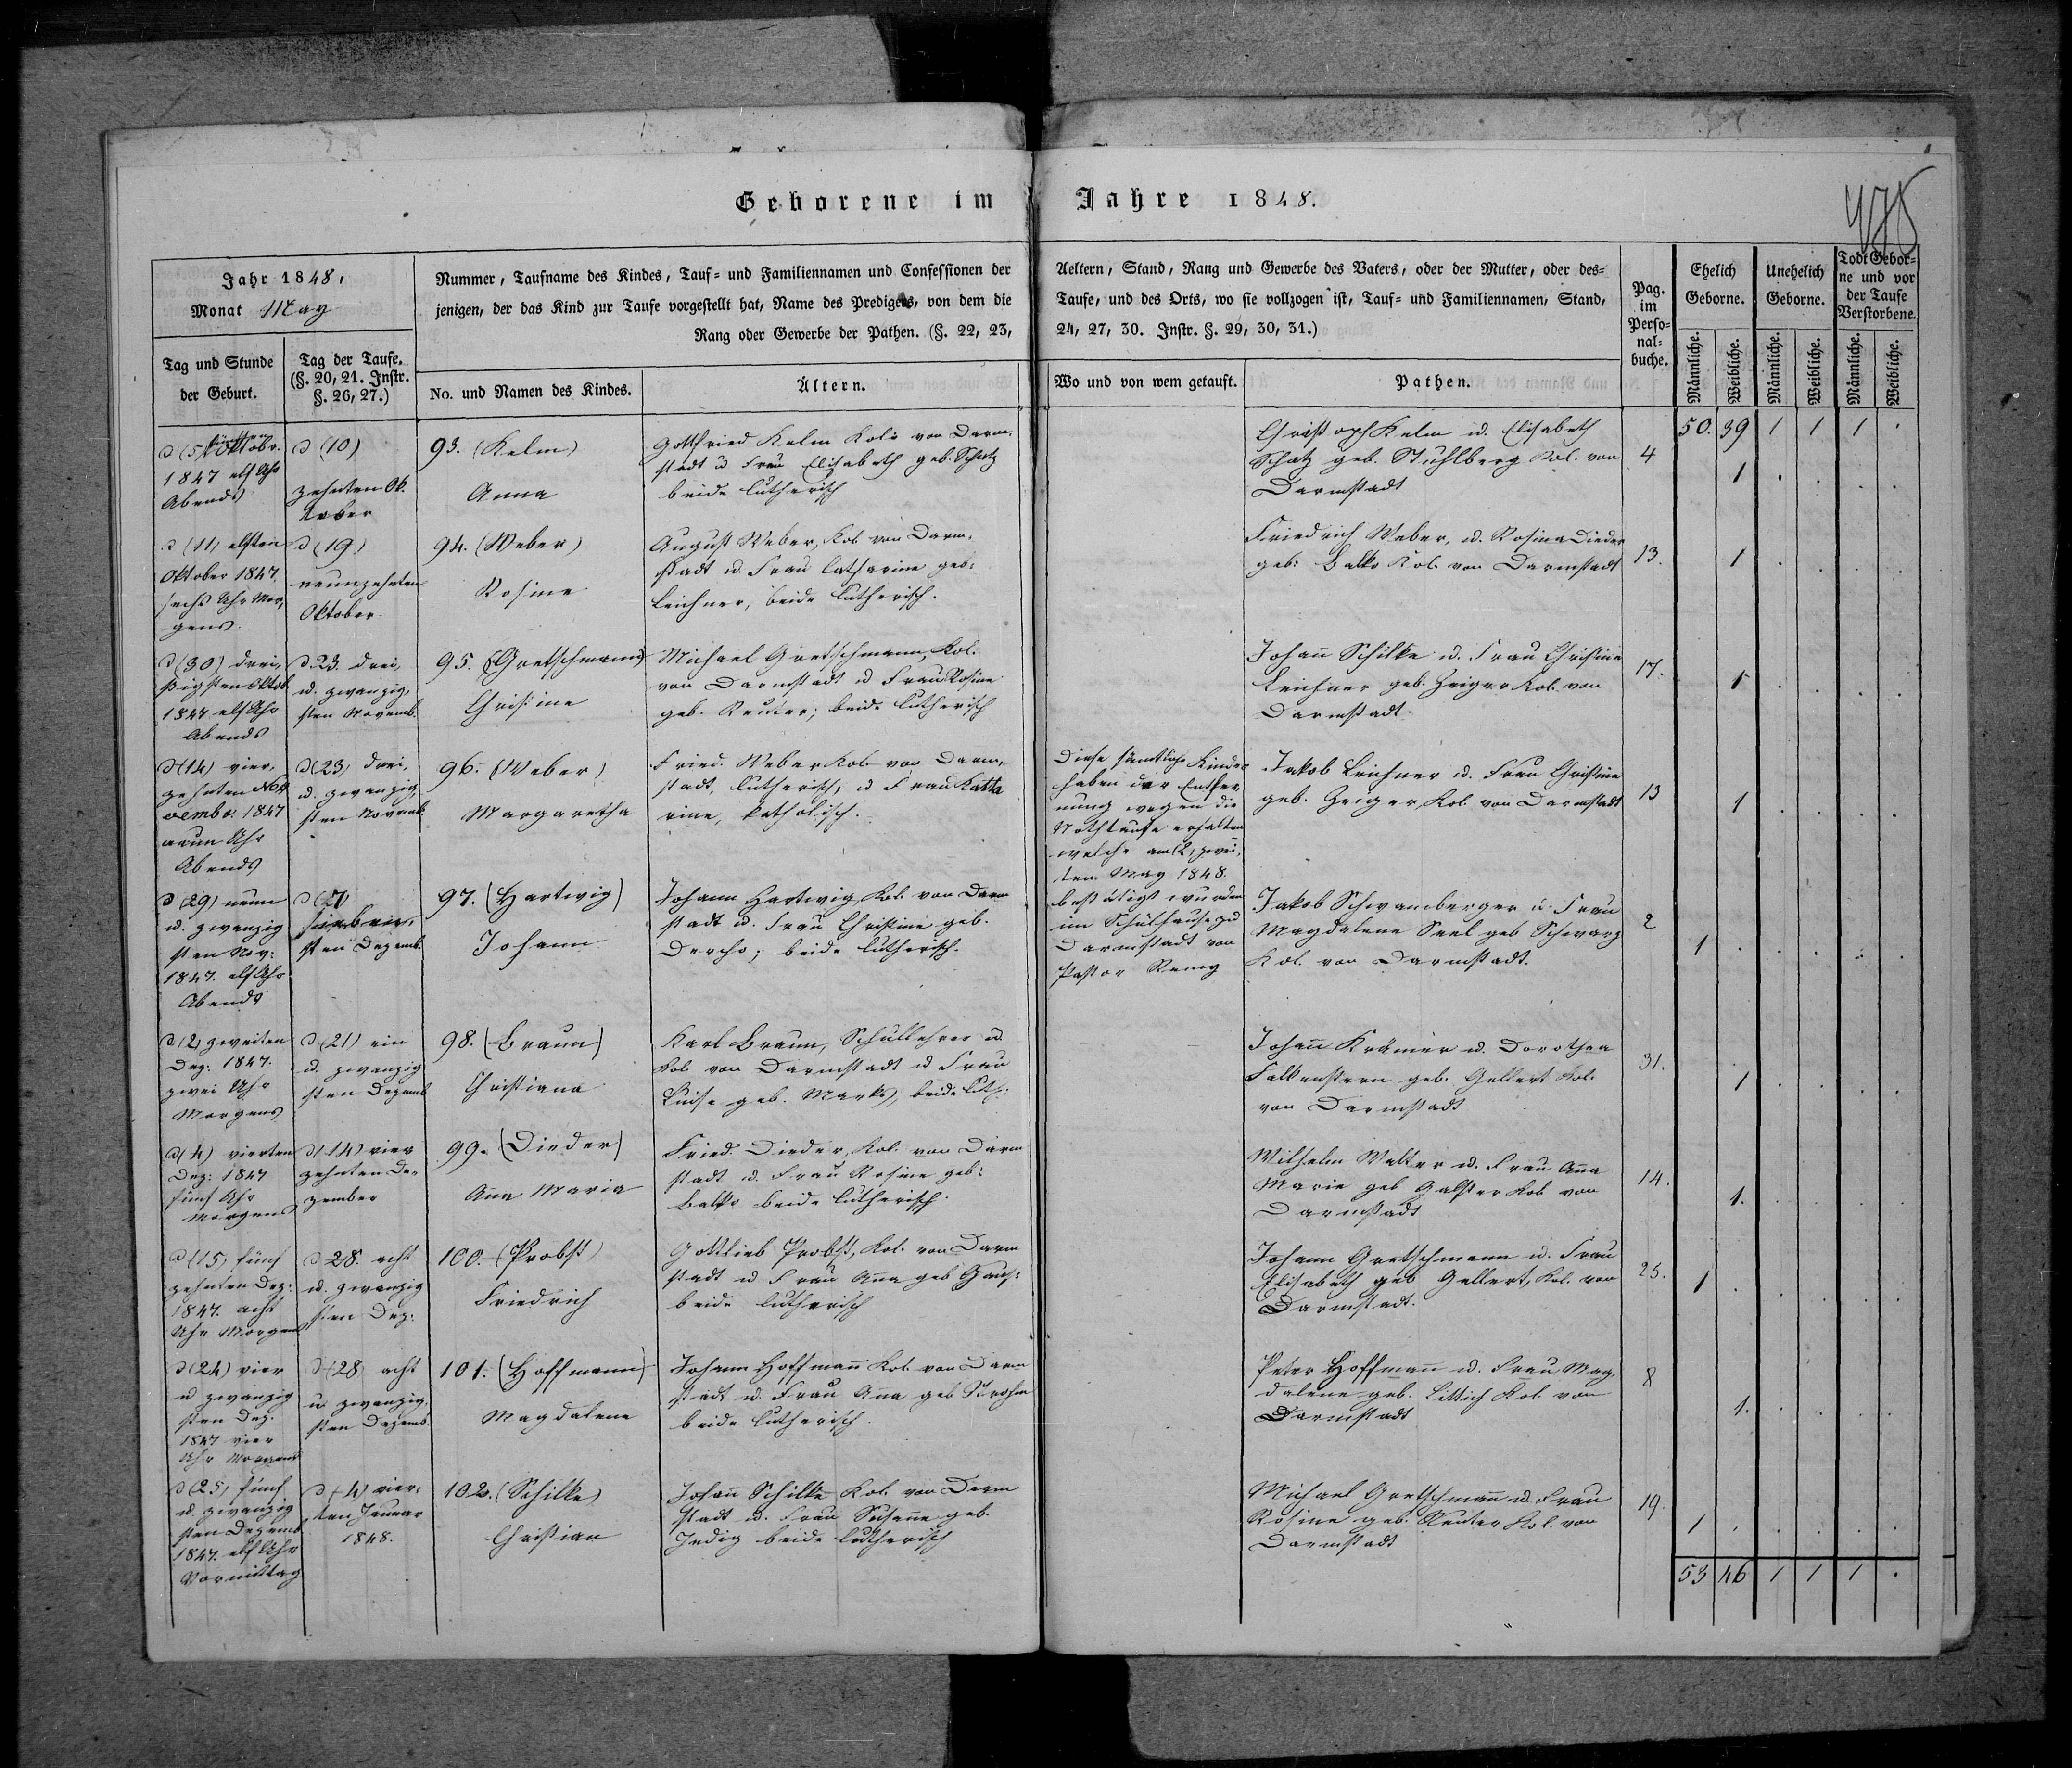 Geborene im Jahre 1848.
475
Jahr 1848,
Monat May
Nummer, Taufname des Kindes, Tauf- und Familiennamen und Confessionen der Aeltern, Stand, Rang und Gewerbe des Vaters, oder der Mutter, oder des-
jenigen, der das Kind zur Taufe vorgestellt hat, Name des Predigers, von dem die Taufe, und des Orts, wo sie vollzogen ist, Tauf- und Familiennamen, Stand,
Rang oder Gewerbe der Pathen. (§. 22, 23, 24, 27, 30. Instr. §. 29, 30, 31.)
Tag und Stunde
der Geburt.
Tag der Taufe.
(§. 20, 21. Instr.
§. 26, 27.)
No. und Namen des Kindes.
Ältern.
Wo und von wem getauft.
Pathen.
Pag.
im
Perso-
nal-
buche.
Ehelich
Geborne.
Unehelich
Geborne.
Todt Gebor-
ne und vor
der Taufe
Verstorbene.
Männliche.
Weibliche.
Männliche.
Weibliche.
Männliche.
Weibliche.
50. 39 1 1 1 .
d (5) fünften Oktobr.
1847 elf Uhr
Abends
d (10)
zehnten Ok-
tober
93. (Kelm)
Anna
Gottfried Kelm Kol: von Darm-
stadt u Frau Elisabeth geb. Schatz
beide lutherisch
Christoph Kelm u. Elisabeth
Schatz geb. Stuhlberg Kol. von
Darmstadt
4
1 . . . .
d (11) elften
Oktober 1847.
sechs Uhr Mor-
gens.
d (19)
neunzehnten
Oktober
94. (Weber)
Rosine
August Weber, Kol. von Darm-
stadt u. Frau Catharine geb:
Leichner, beide lutherisch.
Friedrich Weber, u. Rosina Dieder
geb: Balko Kol. von Darmstadt
13.
1 . . . .
d (30) drei-
ßigsten Oktob
1847 elf Uhr
Abends
d 23. drei-
u. zwanzig-
sten Novemb.
95. (Gretschmann)
Christine
Michael Gretschmann, Kol.
von Darmstadt u Frau Rosine
geb. Reuter; beide lutherisch
Johann Schilke u. Frau Christine
Leichner geb. Zeiger Kol. von
Darmstadt.
17.
1 . . . .
d (14) vier-
zehnten No-
vember 1847
neun Uhr
Abends
d (23) drei-
u. zwanzig-
sten Novemb
96. (Weber)
Margaretha
Fried. Weber Kol. von Darm-
stadt, lutherisch, u Frau Katha
rine, katholisch.
Diese sämtliche Kinder
haben der Entfer
nung wegen die
Nothtaufe erhalten
welche am (2) zwei-
ten May 1848.
bestätigt wurden
im Schulhause zu
Darmstadt von
Pastor Remy
Jakob Leichner u. Frau Christine
geb. Zeiger, Kol. von Darmstadt
13
1 . . . .
d (29) neun
u. zwanzig
sten Nov:
1847. elf Uhr
Abends
d (7)
sieben-
ten Dezemb.
97. (Hartwig)
Johann
Johann Hartwig, Kol. von Darm
stadt u. Frau Christine geb.
Dercho; beide lutherisch.
Jakob Schwamberger u. Frau
Magdalena Seel geb Schwarz
Kol. von Darmstadt.
2
1 . . . . .
d (2) zweiten
Dez: 1847.
zwei Uhr
Morgens
d (21) ein
u. zwanzig
sten Dezemb
98. (Braun)
Christiana
Karl Braun, Schullehrer u.
Kol. von Darmstadt u Frau
Luise geb. Marks, beide luth:
Johann Krämer u. Dorothea
Falkenstern geb. Gellert Kol.
von Darmstadt
31.
1 . . . .
d (4) vierten
Dez: 1847
fünf Uhr
Morgens
d (14) vier
zehnten De-
zember
99. (Dieder)
Anna Maria
Fried. Dieder, Kol. von Darm
stadt u. Frau Rosine geb:
Balko beide lutherisch.
Wilhelm Walter u. Frau Anna
Marie geb Galster Kol. von
Darmstadt
14.
1. . . . .
d (15) fünf
zehnten Dez:
1847. acht
Uhr Morgens
d 28. acht
u. zwanzig
sten Dez:
100. (Probst)
Friedrich
Gottlieb Probst, Kol. von Darm
stadt u Frau Anna geb
beide lutherisch
Johann Gretschmann u. Frau
Elisabeth geb Gellert, Kol. von
Darmstadt.
25.
1 . . . . .
d (24) vier
u zwanzig
sten Dez.
1847 vier
Uhr Morgens
d (28) acht
u. zwanzig-
sten Dezemb.
101. (Hoffmann)
Magdalena
Johann Hoffmann Kol. von Darm
stadt u. Frau Anna geb Strohm
beide lutherisch.
Peter Hoffmann u. Frau Mag-
dalene geb. Littich Kol. von
Darmstadt
8
1. . . . .
d (25) fünf
u. zwanzig
sten Dezemb
1847. elf Uhr
Vormittag
d (4) vier-
ten Januar
1848.
102. (Schilke)
Christian
Johann Schilke Kol. von Darm
stadt u. Frau Susanne geb.
Jedig beide lutherisch
Michael Gretschmann u. Frau
Rosine geb. Reuter Kol. von
Darmstadt
19.
1 . . . . .
53 46 1 1 1 .